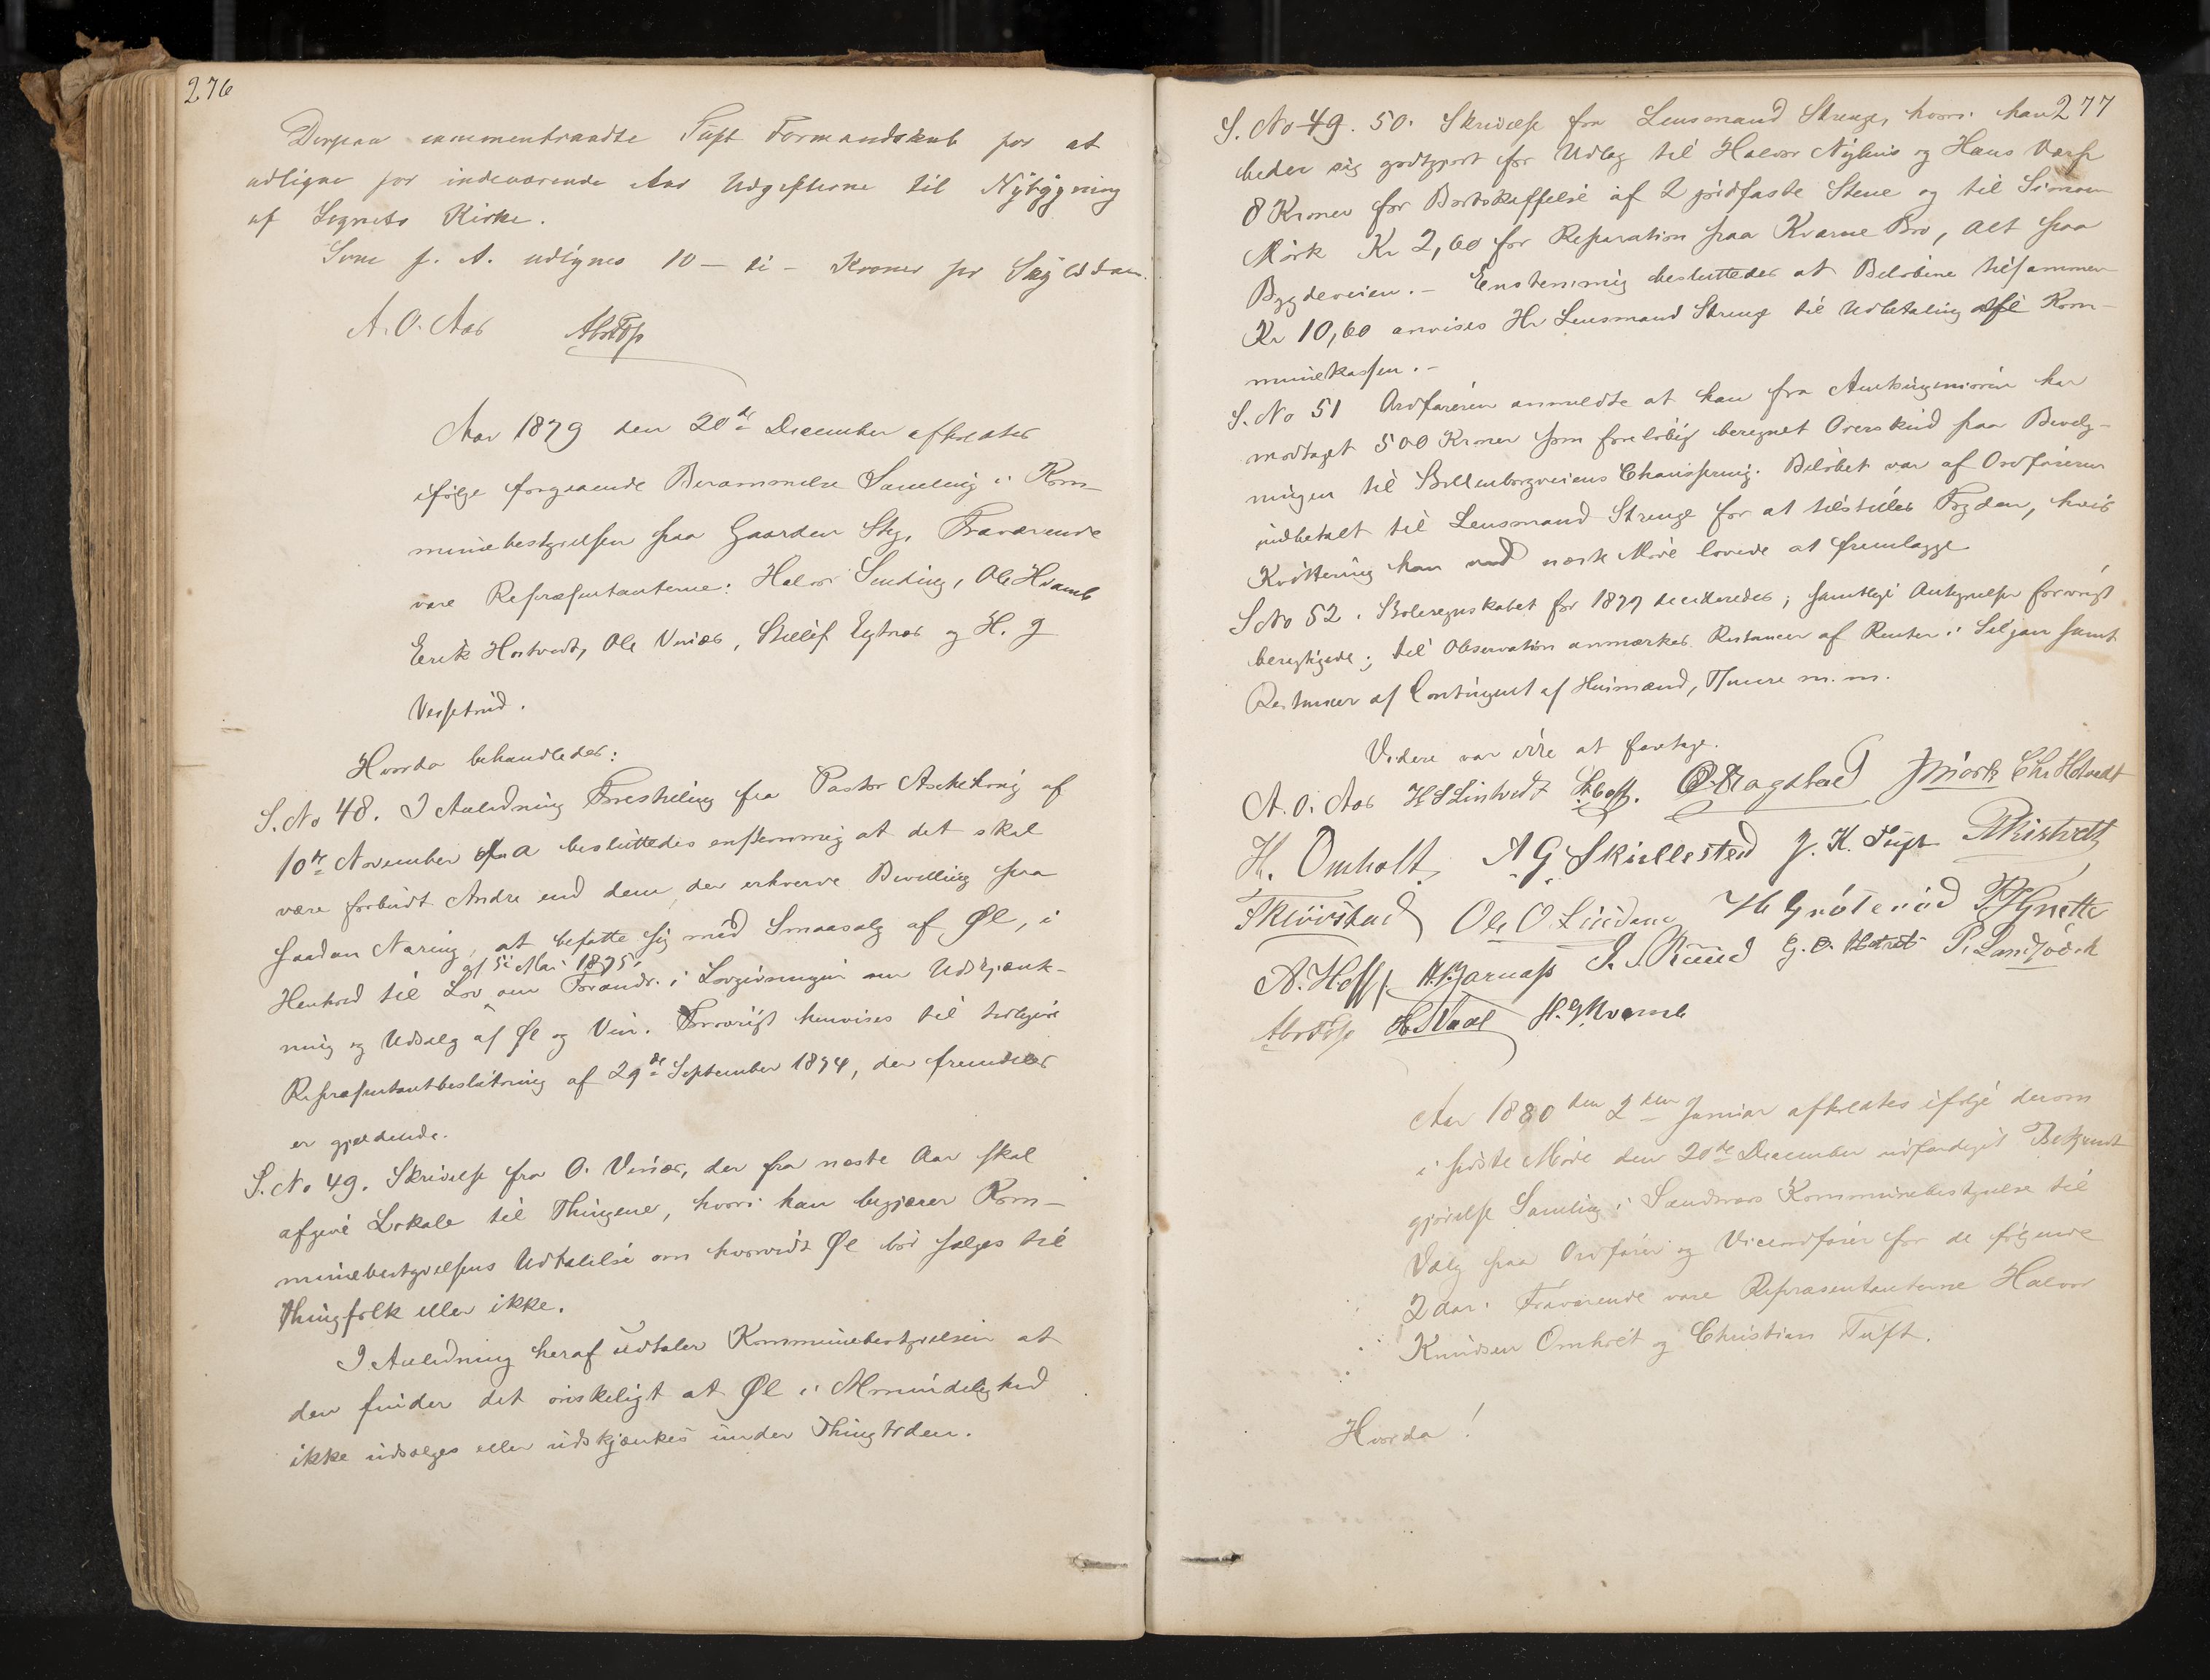 276
Derpaa sammentraadte Tuft Formandskab for at
udligne for indeværende Aar Udgifterne til Nybygning
af Sognets Kirke.
Som f. A. udlignes 10 – ti – Kroner pr Skylddaler.
A. O. Aas
Aar 1879 den 20de December afholdtes
ifølge foregaaende Berammelse Samling i Kom-
munebestyrelsen paa Gaarden Steg. Fraværende
vare Repræsentanterne: Halvor Sending, Ole Hvamb
Erik Hostvedt, Ole Vinæs, Stillef Egtnes og H. G
Vessetrud.
Hvorda behandledes:
S. No 48. I Anledning Forestilling fra Pastor Aschehoug af
10de November d. A besluttedes enstemmig at det skal
være forbudt Andre end dem, der erhverve Bevilling paa
saadan Næring, at befatte sig med Smaasalg af Øl, i
af 5 Mai 1875
Henhold til Lov om Forandr. i Lovgivningen om Udskjænk-
ning og Udsalg af Øl og Vin. Forøvrigt henvises til tidligere
Repræsentantbeslutning af 29de September 1874, der fremdeles
er gjældende.
S. No 49. Skrivelse fra O. Vinæs, der fra næste Aar skal
afgive Lokale til Thingene, hvori han begjærer Kom-
munebestyrelsens Udtalelse om hvorvidt Øl bør sælges til
Thingfolk eller ikke.
I Anledning heraf udtaler Kommunebestyrelsen at
den finder det ønskeligt at Øl i Almindelighed
ikke udsælges eller udskjænkes under Thingtiden.
277
S. No 49. 50. Skrivelse fra Lensmand Strenge, hvori han
beder sig godtgjort for Udlæg til Halvor Nyhus og Hans
8 Kroner for Bortskaffelse af 2 jordfaste Stene og til Simon
Mörk Kr 2,60 for Reparation paa Kværne Bro, alt paa
Bygdeveien. – Enstemmig besluttedes at Beløbene tilsammen
Kr 10,60 anvises Hr Lensmand Strenge til Udbetaling af Kom-
munekassen. –
S. No 51 Ordføreren anmeldte at han fra Amtsingeniøren har
modtaget 500 Kroner som foreløbig beregnet Overskud paa Bevilg-
ningen til Chaussering. Beløbet var af Ordføreren
indbetalt til Lensmand Strenge for at tilstilles Fogden, hvis
Kvittering han ved næste Møde lovede at fremlægge
S No 52. Skoleregnskabet for 1879 decideredes; samtlige Antegnelser forøvrigt
berigtigede; til Observation anmærkes Restancer af Renter i Siljan samt
Restancer af Contingent af Husmænd, Tjenere m. m.
Videre var ikke at foretage.
A. O. Aas H S Lintvedt O. Ragstad J Mørk Chr Hotvedt
H. Omholt A G Skullestad J. K. Tuft
Skuvstad Ole O. Lindem H Grøterød
A. Hoff G. O. P. Landsverk
H. G Kvamb
Aar 1880 den 2den Januar afholdtes ifølge derom
i sidste Møde den 20de December udfærdiget Bekjendt
gjørelse Samling i Sandsværs Kommunebestyrelse til
Valg paa Ordfører og Viceordfører for de følgende
2 Aar. Fraværende vare Repræsentanterne Halvor
Knudsen Omholt og Christian Tuft.
Hvorda!